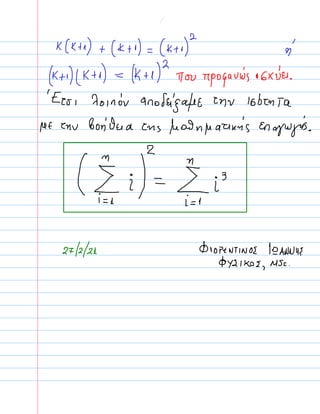 K(K+1) + (K+1) = (K+1)² ή
(K+1)(K+1) = (K+1)² που προφανώς ισχύει.
Έτσι λοιπόν αποδείξαμε την ισότητα
με την βοήθεια της μαθηματικής επαγωγής.
(∑_{i=1}^{n} i)² = ∑_{i=1}^{n} i³
27/2/21 ΦΙΟΡΕΝΤΙΝΟΣ ΙΩΑΝΝΗΣ
ΦΥΣΙΚΟΣ, MSc.